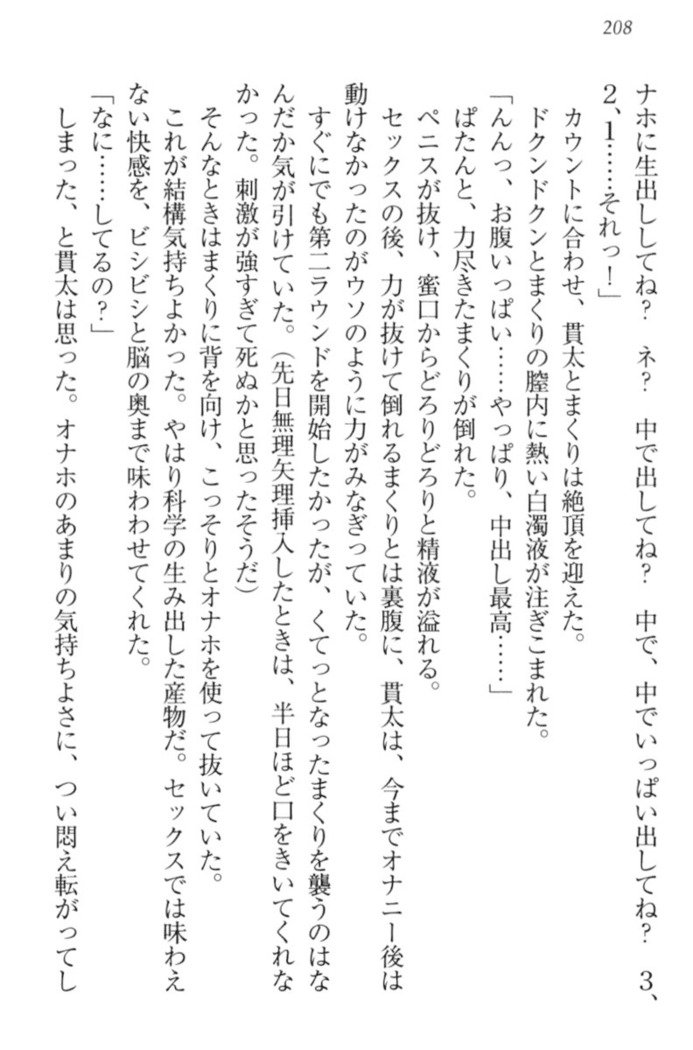 208
ナホに生出ししてね？　ネ？　中で出してね？　中で、中でいっぱい出してね？　3、
2、1……それっ！」
カウントに合わせ、貫太とまくりは絶頂を迎えた。
ドクンドクンとまくりの膣内に熱い白濁液が注ぎこまれた。
「んんっ、お腹いっぱい……やっぱり、中出し最高……」
ぱたんと、力尽きたまくりが倒れた。
ペニスが抜け、蜜口からどろりどろりと精液が溢れる。
セックスの後、力が抜けて倒れるまくりとは裏腹に、貫太は、今までオナニー後は
動けなかったのがウソのように力がみなぎっていた。
すぐにでも第二ラウンドを開始したかったが、くてっとなったまくりを襲うのはな
んだか気が引けていた。（先日無理矢理挿入したときは、半日ほど口をきいてくれな
かった。刺激が強すぎて死ぬかと思ったそうだ）
そんなときはまくりに背を向け、こっそりとオナホを使って抜いていた。
これが結構気持ちよかった。やはり科学の生み出した産物だ。セックスでは味わえ
ない快感を、ビシビシと脳の奥まで味わわせてくれた。
「なに……してるの？」
しまった、と貫太は思った。オナホのあまりの気持ちよさに、つい悶え転がってし